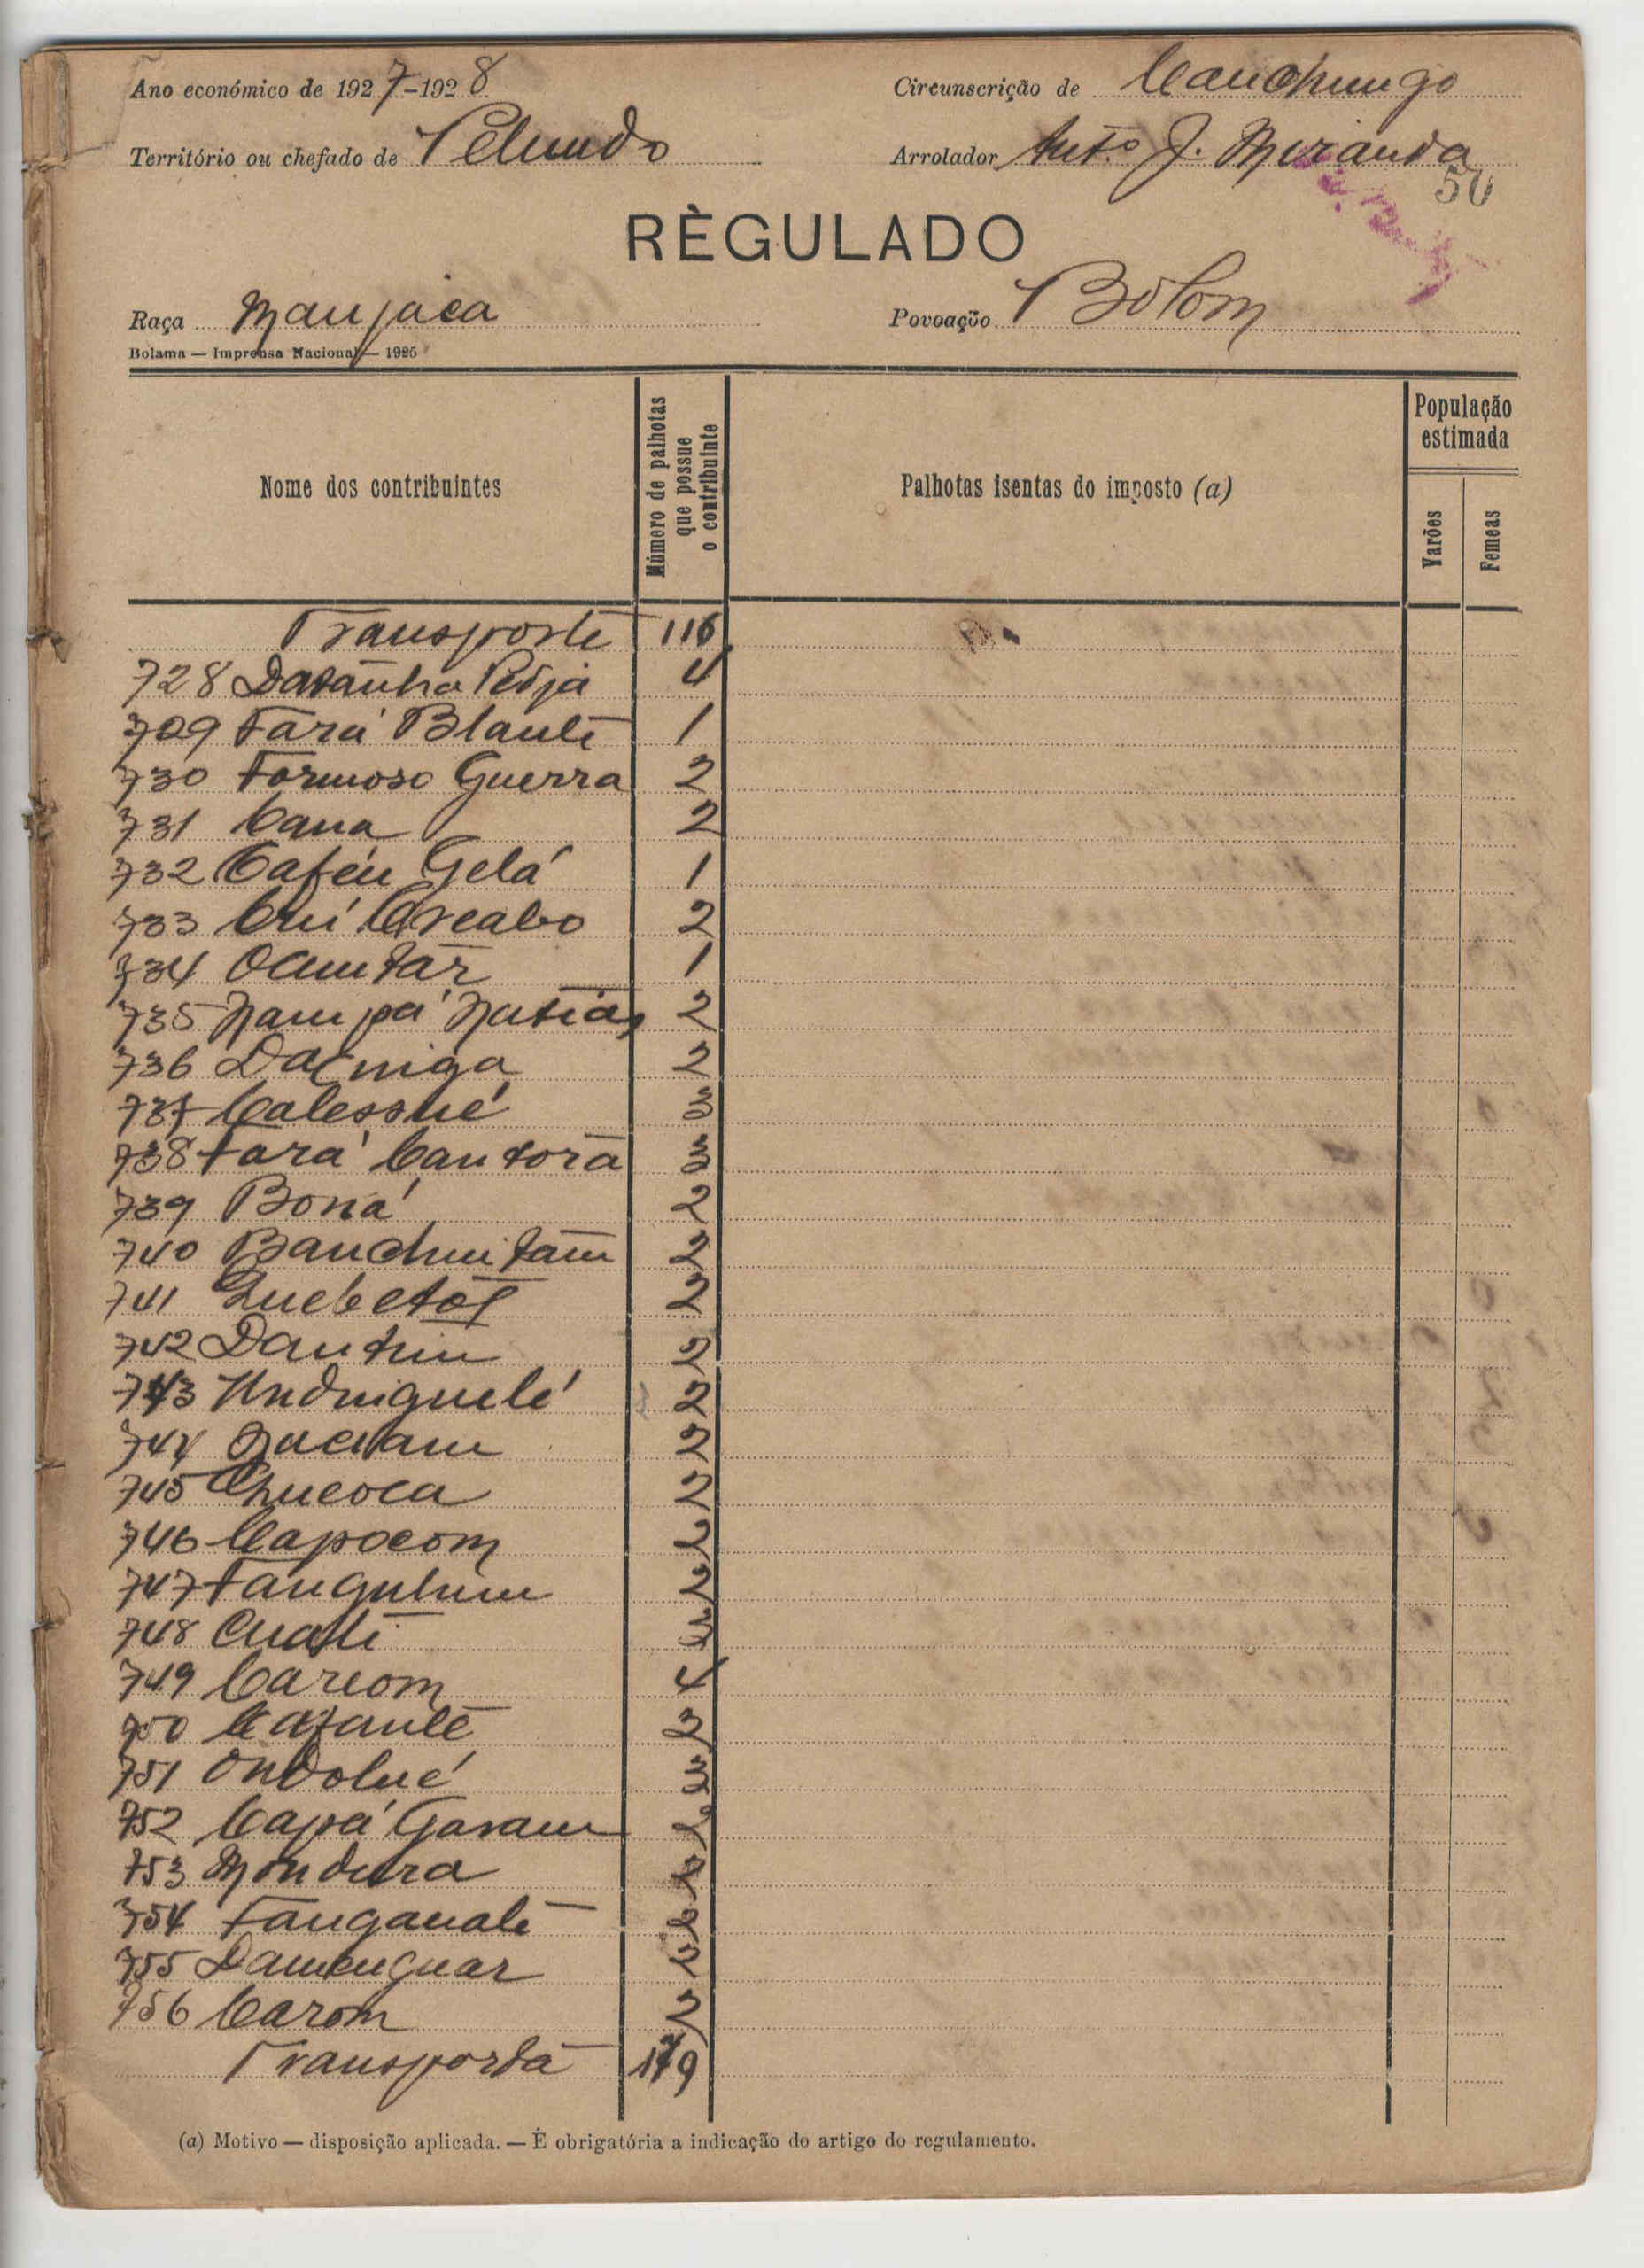 Ano económico de 1927-1928
Circunscrição de Canchungo
Território ou chefado de Pelundo
Arrolador Antº J. Miranda
50
RÈGULADO
Raça Manjaca
Povoação Bolom
Bolama — Imprensa Nacional — 1925
Nome dos contribuintes
Número de palhotas que possue o contribuinte
Palhotas isentas do imposto (a)
População estimada
Varões
Femeas
Transporte 116
728 4
709 Fará Blanté 1
730 Formoso Guerra 2
731 Cana 2
732 Caféu Gelá 1
733 2
734 Ocuntar 1
735 Nampá 2
736 2
737 Calessué 3
738 Fará Cantora 3
739 Boná 2
740 Banchutam 2
741 Quebetol 2
742 Dantim 2
743 Undniguelé 2
744 2
745 2
746 Capocom 2
747 2
748 Cuati
749 Cariom 4
750 Cafanté
751 Ondolué 3
752 Capá 2
753 Mondura 2
754 Fanganaté 2
755 Damenguar 2
756 Carom 2
Transporta 179
(a) Motivo — disposição aplicada. — É obrigatória a indicação do artigo do regulamento.